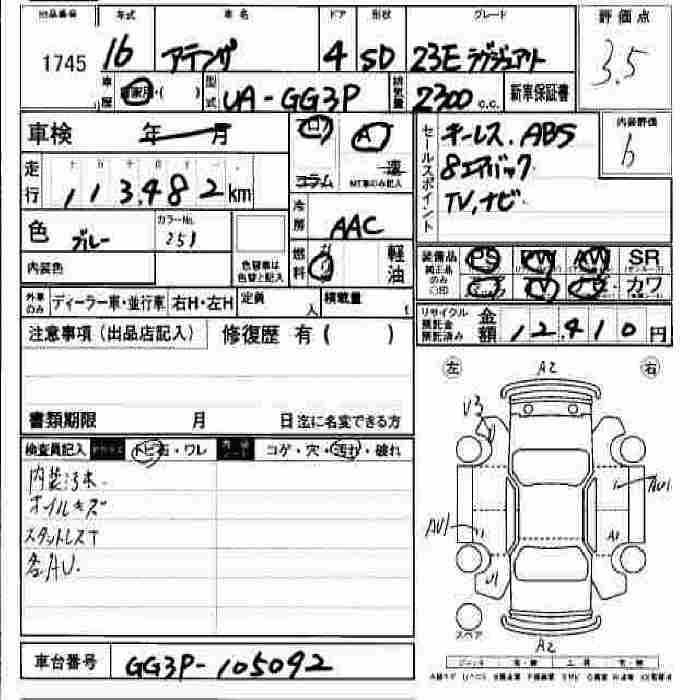 出品番号 年式 車名 ドア 形状 グレード 評価点
1745 16 アテンザ 4 SD 23E ラグジュアリー 3.5
車歴 自家用・( ) 型式 UA-GG3P 排気量 2300 c.c. 新車保証書
車検 年 月 コラム MT車のみ記入
セールスポイント キーレス.ABS 内装評価
8エアバック b
TV,ナビ
走行 113,482 km
色 ブルー カラーNo. 251 色替車は色替と記入 冷房 AAC
内装色 燃料 ガソリン 軽油
装備品 純正品のみ○印 PS PW AW SR
TV カワ
外車のみ ディーラー車・並行車 右H・左H 定員 人 積載量 t
リサイクル預託金預託済み 金額 12,410円
注意事項(出品店記入) 修復歴 有( )
左 A2 右
書類期限 月 日迄に名変できる方
V3
検査員記入 トビ石・ワレ コゲ・穴・汚れ・破れ
内装汚れ.
ホイルキズ
スタットレスT
各AU.
AU1
AU1
A1
U1
スペア
A2
車台番号 GG3P-105092